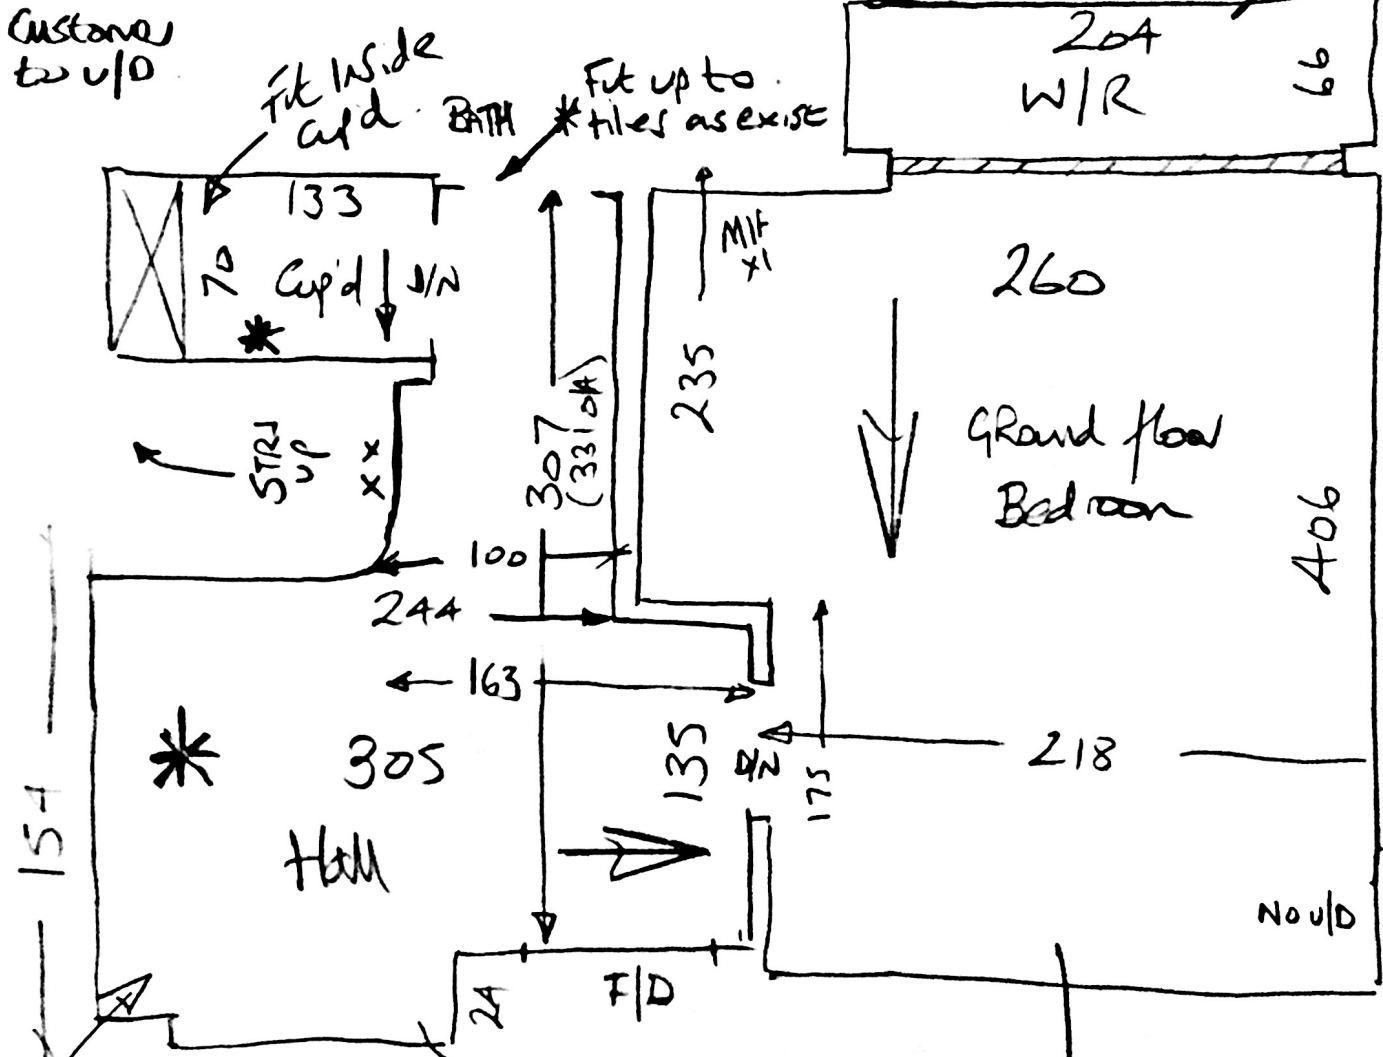 Customer
to U/D
Fit Inside
Cup'd.
BATH
* Fit up to
tiles as exist
204
W/R
99
133
70
Cup'd
D/N
*
M/F
x1
260
235
307
(331 o/A)
Ground floor
Bedroom
406
STRS
up
x x
100
244
163
*
305
Hall
135
D/N
175
218
154
No U/D
24
F/D
x